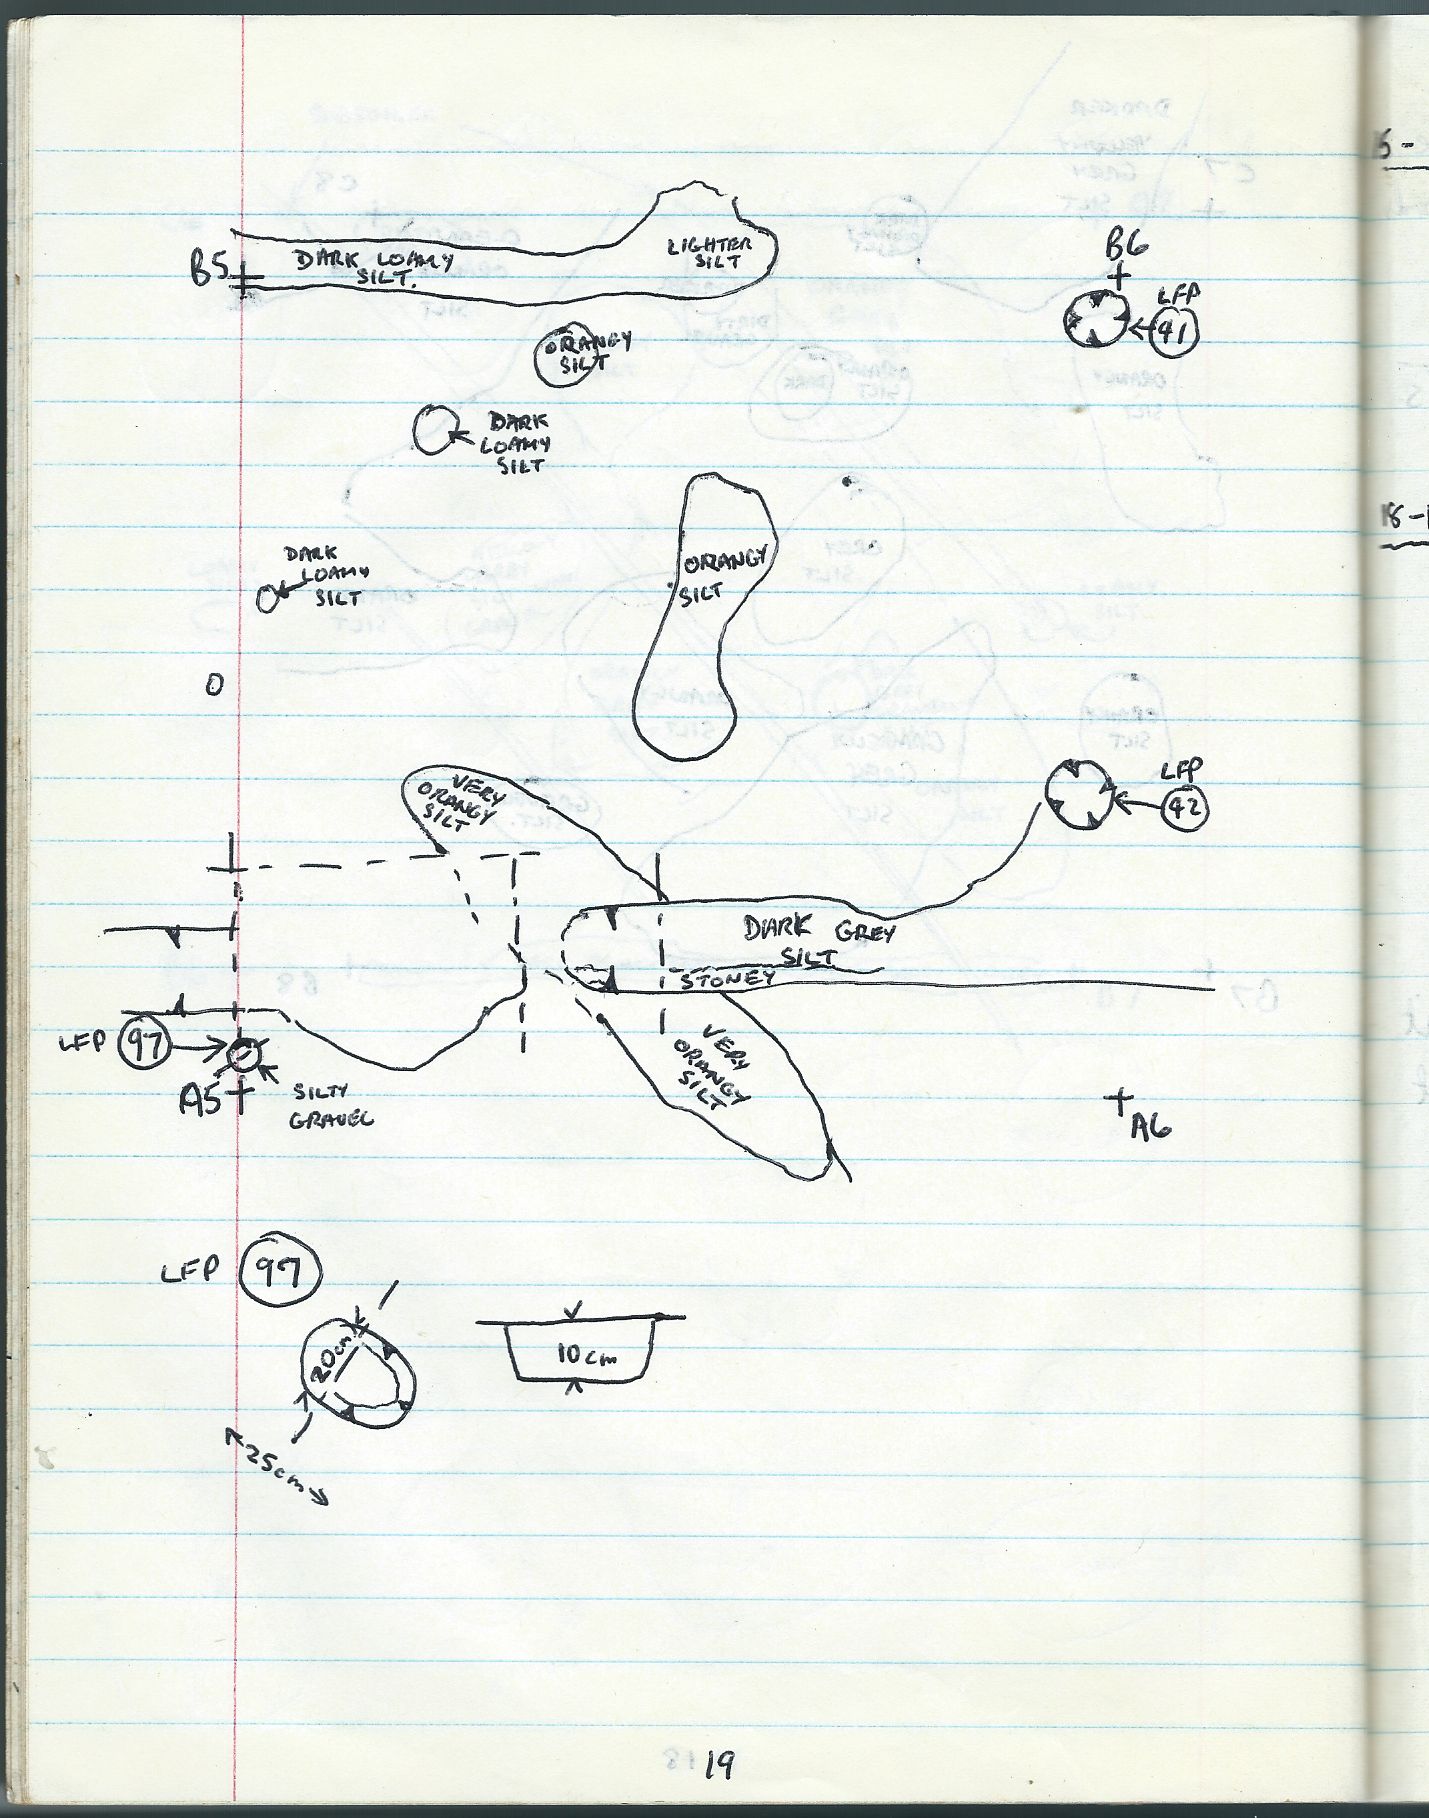 B6
B5
DARK LOAMY
SILT.
LIGHTER
SILT
LFP
91
ORANGY
SILT
DARK
LOAMY
SILT
DARK
LOAMY
SILT
ORANGY
SILT
O
VERY
ORANGY
SILT
LFP
92
DARK GREY
SILT
STONEY
LFP 97
A5
SILTY
GRAVEL
VERY
ORANGY
SILT
A6
LFP 97
20cm
10cm
25cm
19
15-
18-